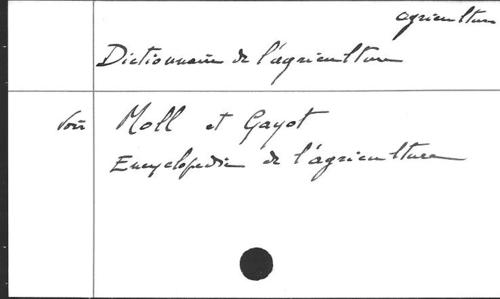 agriculture
Dictionnaire de l'agriculture
Voir Moll et Gayot
Encyclopédie de l'agriculture